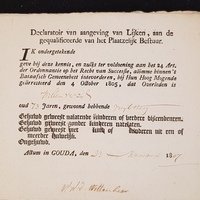 Declaratoir van aangeving van Lijken, aan de
gequalificeerde van het Plaatzelijk Bestuur.
IK ondergetekende
geve bij deze kennis, en zulks ter voldoening aan het 24 Art.
der Ordonnantie op het Recht van Successie, alomme binnen 't
Bataafsch Gemeenebest intevoorderen, bij Hun Hoog Mogende
gearresteerd den 4 October 1805, dat Overleden is
oud 73 Jaren, gewoond hebbende
Gehuwd geweest nalatende kinderen of verdere bijzonderheden.
Gehuwd geweest zonder kinderen natelaten.
Gehuwd geweest met kind of kinderen uit een of
meerder Huwelijk.
Ongehuwd.
Actum in GOUDA, den 1807